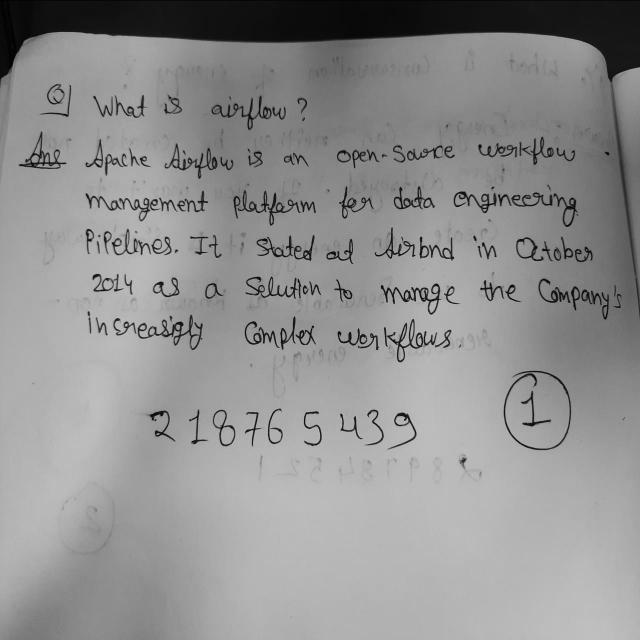 Q] What is airflow?
Ans Apache Airflow is an open-Source workflow.
management platform for data engineering
Pipelines. It stated at Airbnd in October
2014 as a Solution to manage the Company's
increasigly Complex workflows.
218765439
1